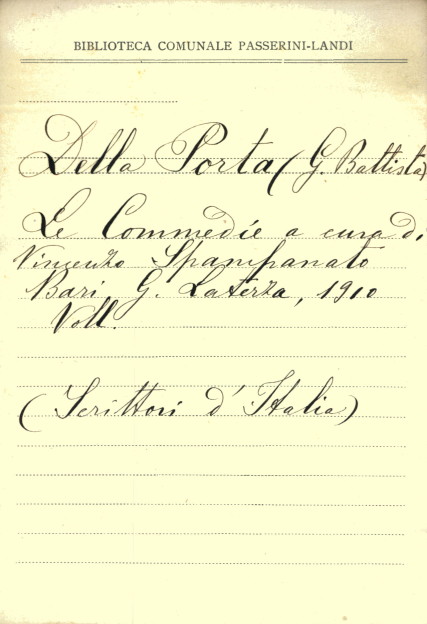 BIBLIOTECA COMUNALE PASSERINI-LANDI
Della Porta (G. Battista)
Le Commedie a cura di
Vincenzo Spampanato
Bari, G. Laterza, 1910
Voll.
(Scrittori d'Italia)